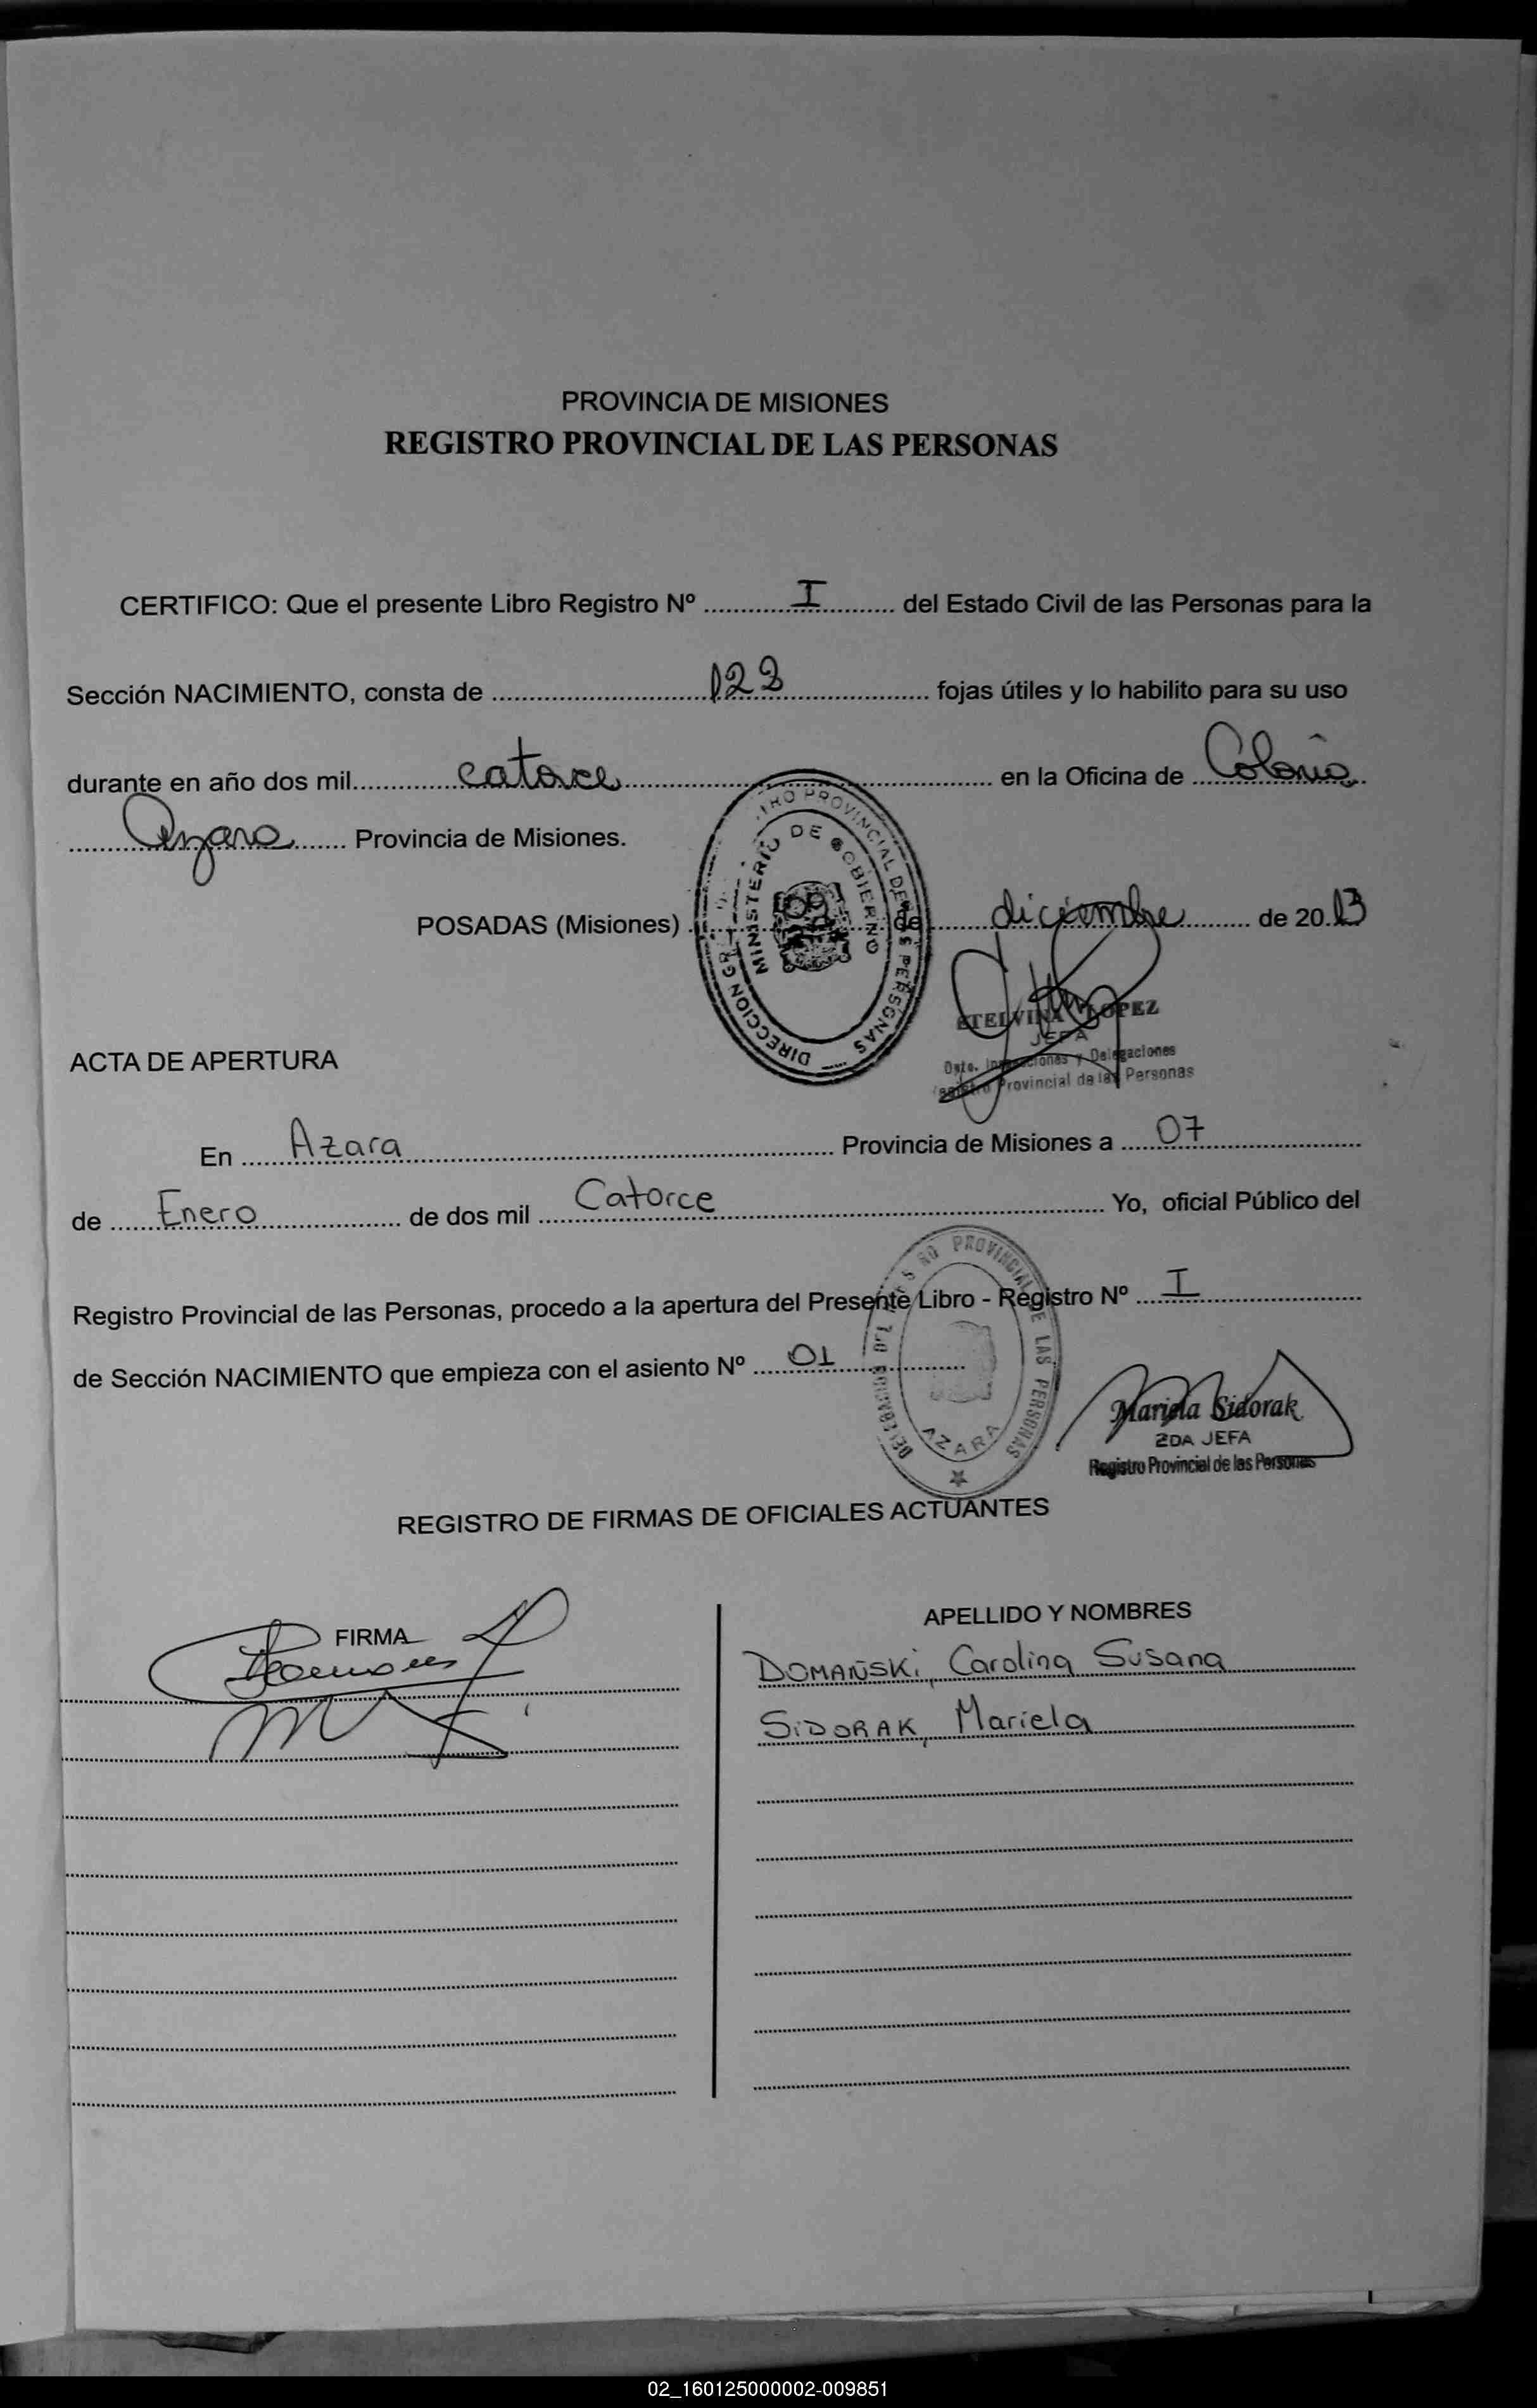 PROVINCIA DE MISIONES
REGISTRO PROVINCIAL DE LAS PERSONAS
CERTIFICO: Que el presente Libro Registro Nº ............I........... del Estado Civil de las Personas para la
Sección NACIMIENTO, consta de ............123............ fojas útiles y lo habilito para su uso
durante en año dos mil............catorce............ en la Oficina de Colonia
............Azara............ Provincia de Misiones.
POSADAS (Misiones) ............ de ............diciembre............ de 20.13
DIRECCION GRAL PROVINCIAL DE LAS PERSONAS
MINISTERIO DE GOBIERNO
ETELVINA LOPEZ
JEFA
Dpto. Inspecciones y Delegaciones
Registro Provincial de las Personas
ACTA DE APERTURA
En ............Azara............ Provincia de Misiones a ............07............
de ............Enero............ de dos mil ............Catorce............ Yo, oficial Público del
Registro Provincial de las Personas, procedo a la apertura del Presente Libro - Registro Nº ............I............
de Sección NACIMIENTO que empieza con el asiento Nº ............01............
PROVINCIAL DE LAS PERSONAS
AZARA
Mariela Sidorak
2DA JEFA
Registro Provincial de las Personas
REGISTRO DE FIRMAS DE OFICIALES ACTUANTES
FIRMA
APELLIDO Y NOMBRES
DOMAÑSKi, Carolina Susana
SiDORAK, Mariela
02_160125000002-009851